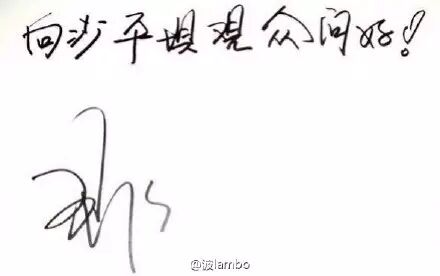 向沙平坝观众问好!
@波lambo